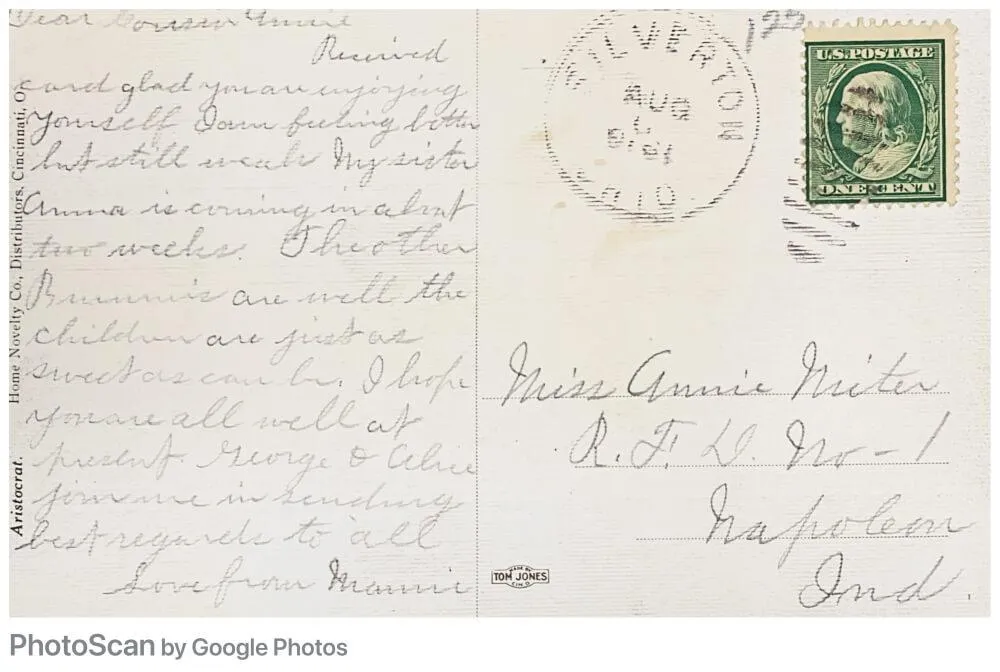 Dear Cousin Annie
Received
card glad you are enjoying
yourself I am feeling better
but still weak My sister
Anna is coming in about
two weeks. The other
are well the
children are just as
sweet as can be. I hope
you are all well at
present. George & Alice
join me in sending
best regards to all
Love from Mamie
Aristocrat. Home Novelty Co., Distributors, Cincinnati, O.
SILVERTON
AUG
OHIO
U.S. POSTAGE
ONE CENT
Miss Annie Niter
R. F. D. No - 1
Napoleon
Ind.
MADE BY
TOM JONES
CIN. O.
PhotoScan by Google Photos